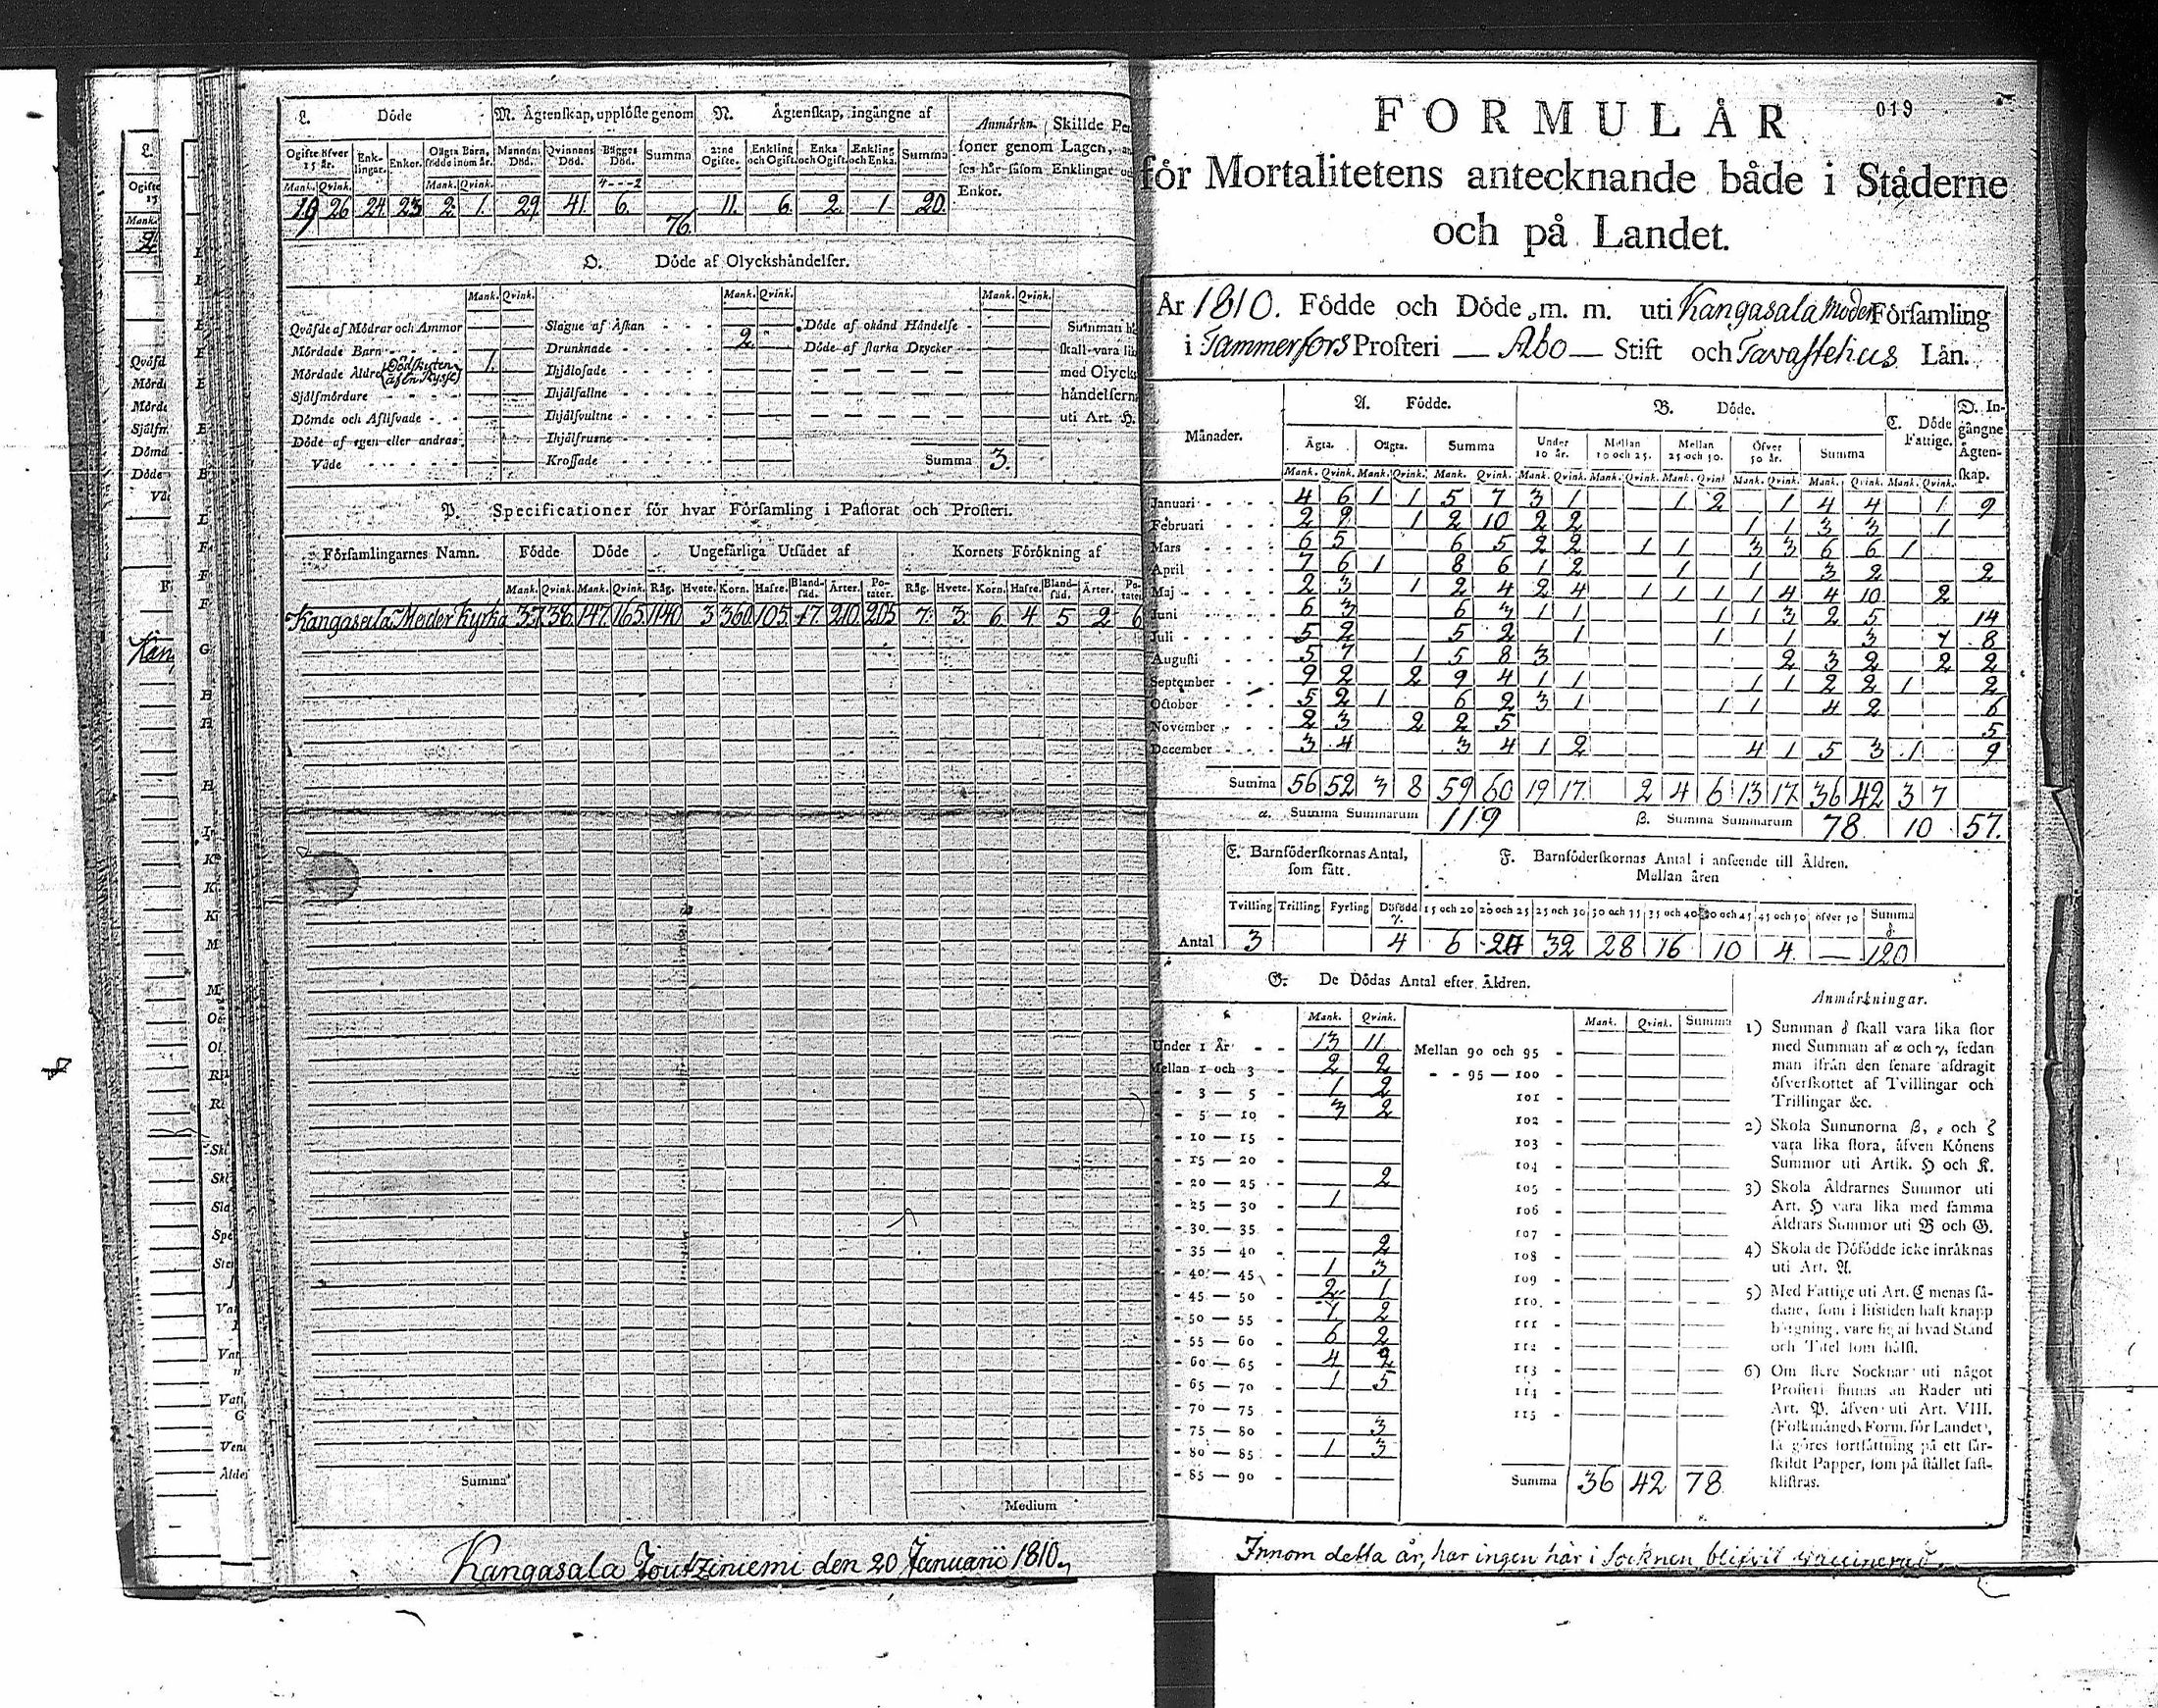 L. Döde
M. Ägtenskap, upplöste genom
N. Ägtenskap, ingångne af
Anmärkn. Skillde Per
soner genom Lagen, an
ses här såsom Enklingar och
Enkor.
Ogifte öfver 15 år. Enklingar. Enkor. Oägta Barn, födde inom år. Mannens Död. Qvinnans Död. Bägges Död. Summa 2:ne Ogifte. Enkling och Ogift. Enka och Ogift. Enkling och Enka. Summa
Mank. Qvink. Mank. Qvink.
19 26 24 23 2 1 29 41 6 76 11 6 2 1 20
O. Döde af Olyckshändelser.
Mank. Qvink. Mank. Qvink. Mank. Qvink.
Qväfde af Mödrar och Ammor
Mördade Barn
Mördade Äldre 1
Själfmördare
Dömde och Aflifvade
Döde af egen eller andras
Våde
Slagne af Åskan
Drunknade 2
Ihjälosade
Ihjälfallne
Ihjälsvultne
Ihjälfrusne
Krossade
Döde af okänd Händelse
Döde af starka Drycker
Summa 3
Summan h
skall vara lik
med Olycks
händelsern
uti Art. H.
P. Specificationer för hvar Församling i Pastorat och Prosteri.
Församlingarnes Namn. Födde Döde Ungefärliga Utsädet af Kornets Förökning af
Mank. Qvink. Mank. Qvink. Råg. Hvete. Korn. Hafre. Blandsäd. Ärter. Potater. Råg. Hvete. Korn. Hafre. Blandsäd. Ärter. Potater.
Kangasala Moder Kyrka 37 36 147 165 1140 3 360 105 17 210 205 7 3 6 4 5 2 6
Summa
Medium
Kangasala Joutziniemi den 20 Januarii 1810.
019
FORMULÄR
för Mortalitetens antecknande både i Städerne
och på Landet.
År 1810. Födde och Döde m. m. uti Kangasala Moder Församling
i Tammerfors Prosteri — Abo — Stift och Tavastehus Län.
Månader. A. Födde. B. Döde. C. Döde Fattige. D. Ingångne Ägtenskap.
Ägta. Oägta. Summa Under 10 år. Mellan 10 och 25. Mellan 25 och 50. Öfver 50 år. Summa
Mank. Qvink. Mank. Qvink. Mank. Qvink. Mank. Qvink. Mank. Qvink. Mank. Qvink. Mank. Qvink. Mank. Qvink. Mank. Qvink.
Januari 4 6 1 1 5 7 3 1 1 2 1 4 4 1 9
Februari 2 9 1 2 10 2 2 1 1 3 3 1
Mars 6 5 6 5 2 2 1 1 3 3 6 6 1
April 7 6 1 8 6 1 2 1 1 3 2 2
Maj 2 3 1 2 4 2 4 1 1 1 1 4 4 10 2
Juni 6 3 6 3 1 1 1 1 3 2 5 14
Juli 5 2 5 2 1 1 1 3 1 8
Augusti 5 7 1 5 8 3 2 3 2 2 2
September 9 2 2 9 4 1 1 1 1 2 2 1 2
October 5 2 1 6 2 3 1 1 1 4 2 6
November 2 3 2 2 5 5
December 3 4 3 4 1 2 4 1 5 3 1 9
Summa 56 52 3 8 59 60 19 17 2 4 6 13 17 36 42 3 7
α. Summa Summarum 119 β. Summa Summarum 78 10 57.
E. Barnföderskornas Antal, som fått.
F. Barnföderskornas Antal i anseende till Åldren.
Mellan åren
Tvilling Trilling Fyrling Dödfödd γ. 15 och 20 20 och 25 25 och 30 30 och 35 35 och 40 40 och 45 45 och 50 öfver 50 Summa δ
Antal 3 4 6 24 32 28 16 10 4 — 120
G. De Dödas Antal efter Åldren.
Mank. Qvink.
Under 1 År 13 11
Mellan 1 och 3 2 2
3 — 5 1 2
5 — 10 3 2
10 — 15
15 — 20
20 — 25 2
25 — 30 1
30 — 35
35 — 40 2
40 — 45 1 3
45 — 50 2 1
50 — 55 1 2
55 — 60 6 2
60 — 65 4 2
65 — 70 1 5
70 — 75
75 — 80 3
80 — 85 1 3
85 — 90
Mank. Qvink. Summa
Mellan 90 och 95
95 — 100
101
102
103
104
105
106
107
108
109
110
111
112
113
114
115
Summa 36 42 78
Anmärkningar.
1) Summan δ skall vara lika stor
med Summan af α och γ, sedan
man ifrån den senare afdragit
öfverskottet af Tvillingar och
Trillingar &c.
2) Skola Summorna β, ε och ζ
vara lika stora, äfven Könens
Summor uti Artik. H och K.
3) Skola Åldrarnes Summor uti
Art. H vara lika med samma
Åldrars Summor uti B och G.
4) Skola de Dödfödde icke inräknas
uti Art. A.
5) Med Fattige uti Art. C menas så-
dane, som i lifstiden haft knapp
bärgning, vare sig af hvad Stånd
och Titel som hälst.
6) Om flere Socknar uti något
Prosteri finnas än Rader uti
Art. P, äfven uti Art. VIII.
(Folkmängds Form. för Landet),
så göres fortsättning på ett sär-
skildt Papper, som på stället fast-
klistras.
Innom detta år, har ingen här i Socknen blifvit vaccinerad.